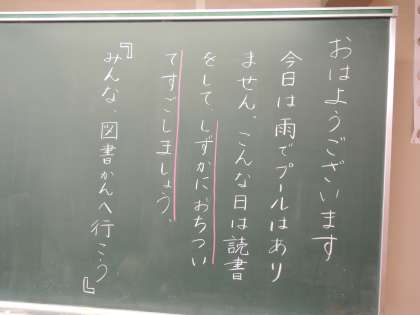 おはようございます
今日は雨でプールはあり
ません。こんな日は読書
をして、しずかにおちつい
てすごしましょう。
『みんな、図書かんへ行こう』